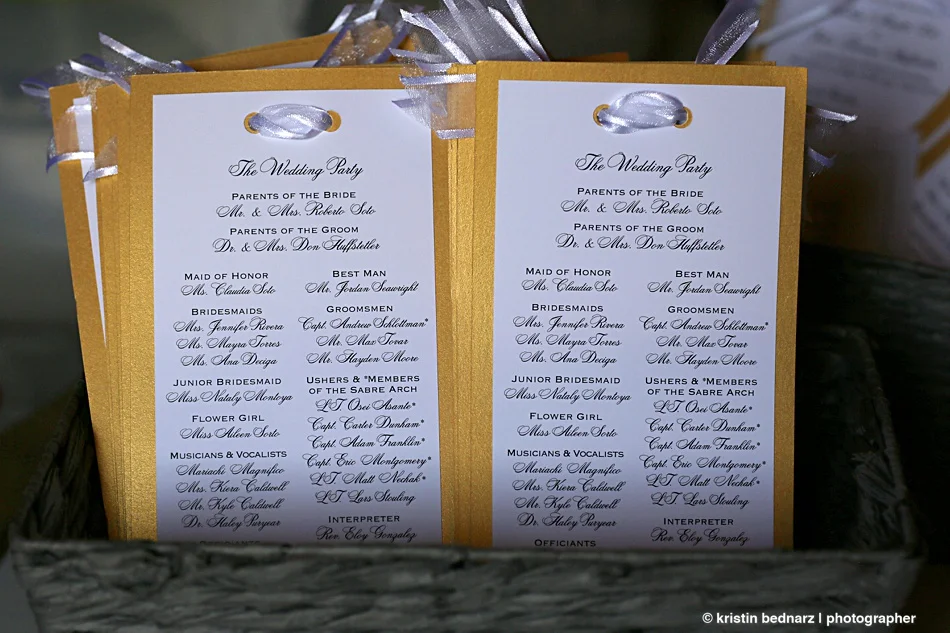 The Wedding Party
Parents of the Bride
Mr. & Mrs. Roberto Soto
Parents of the Groom
Dr. & Mrs. Don Huffstetler
Maid of Honor
Ms. Claudia Soto
Bridesmaids
Mrs. Jennifer Rivera
Ms. Mayra Torres
Ms. Ana Deciga
Junior Bridesmaid
Miss Nataly Montoya
Flower Girl
Miss Aileen Sorto
Musicians & Vocalists
Mariachi Magnifico
Mrs. Kiera Caldwell
Mr. Kyle Caldwell
Dr. Haley Puryear
Officiants
Best Man
Mr. Jordan Seawright
Groomsmen
Capt. Andrew Schlottman*
Mr. Max Tovar
Mr. Hayden Moore
Ushers & *Members
of the Sabre Arch
LT Osei Asante*
Capt. Carter Dunham*
Capt. Adam Franklin*
Capt. Eric Montgomery*
LT Matt Nechak*
LT Lars Stouling
Interpreter
Rev. Eloy Gonzalez
The Wedding Party
Parents of the Bride
Mr. & Mrs. Roberto Soto
Parents of the Groom
Dr. & Mrs. Don Huffstetler
Maid of Honor
Ms. Claudia Soto
Bridesmaids
Mrs. Jennifer Rivera
Ms. Mayra Torres
Ms. Ana Deciga
Junior Bridesmaid
Miss Nataly Montoya
Flower Girl
Miss Aileen Sorto
Musicians & Vocalists
Mariachi Magnifico
Mrs. Kiera Caldwell
Mr. Kyle Caldwell
Dr. Haley Puryear
Officiants
Best Man
Mr. Jordan Seawright
Groomsmen
Capt. Andrew Schlottman*
Mr. Max Tovar
Mr. Hayden Moore
Ushers & *Members
of the Sabre Arch
LT Osei Asante*
Capt. Carter Dunham*
Capt. Adam Franklin*
Capt. Eric Montgomery*
LT Matt Nechak*
LT Lars Stouling
Interpreter
Rev. Eloy Gonzalez
© kristin bednarz | photographer